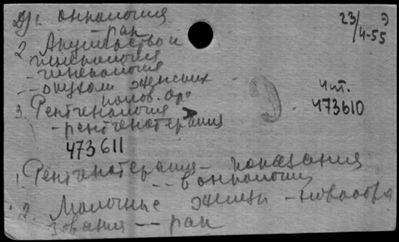 онкология
рак
23/4-55
Э
2. Акушерство и
гинекология
- гинекология
-- опухоли женских
полов. орг
3. Рентгенология
- рентгенотерапия
473611
Чит.
473610
1. Рентгенотерапия - показания
-- в онкологии
2. Молочные железы - новообра
зования -- рак